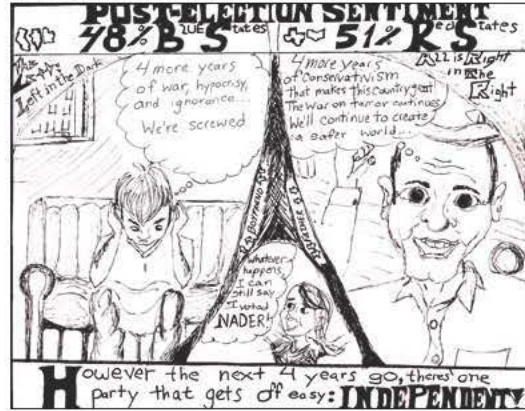 POST-ELECTION SENTIMENT
48% BLUE STATES
51% Red States
Left in the Dark
All is Right
in The
Right
4 more years
of war, hypocrisy,
and ignorance...
We're screwed
4 more years
of Conservativism
that makes this country great
The war on terror continues
We'll continue to create
a safer world...
whatever
happens,
I can
still say
I voted
NADER!
However the next 4 years go, theres' one
party that gets off easy: INDEPENDENT!